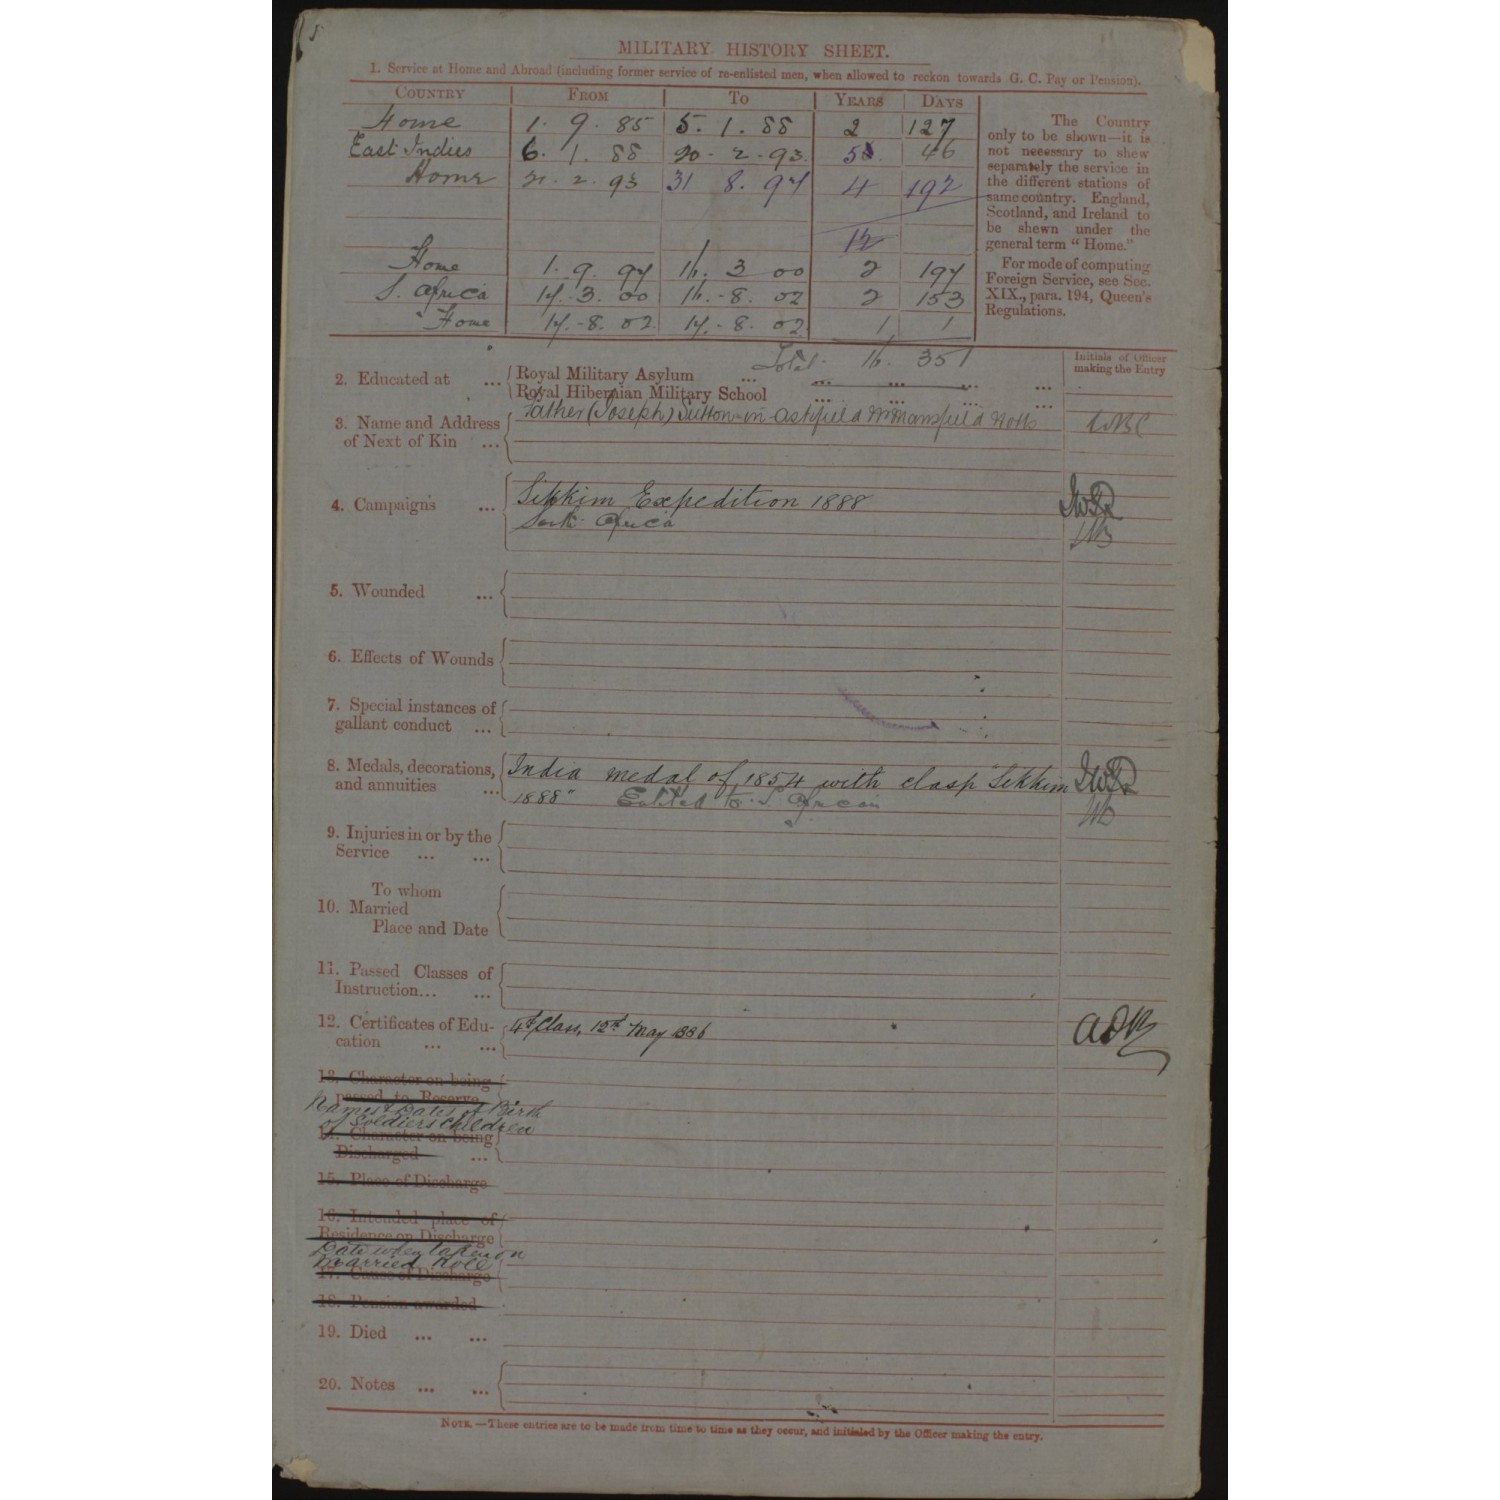 MILITARY HISTORY SHEET.
1. Service at Home and Abroad (including former service of re-enlisted men, when allowed to reckon towards G. C. Pay or Pension).
COUNTRY FROM TO YEARS DAYS
Home 1. 9. 85 5. 1. 88 2 127
East Indies 6. 1. 88 20. 2. 93. 5 46
Home 21. 2. 93 31 8. 97 4 192
12
Home 1. 9. 97 16. 3 00 2 197
S. Africa 17. 3. 00 16. 8. 02 2 153
Home 17. 8. 02 17. 8. 02 1 1
Total. 16. 351
The Country
only to be shown—it is
not necessary to shew
separately the service in
the different stations of
same country. England,
Scotland, and Ireland to
be shewn under the
general term "Home."
For mode of computing
Foreign Service, see Sec.
XIX., para. 194, Queen's
Regulations.
Initials of Officer
making the Entry
2. Educated at ... Royal Military Asylum ... ... ... ... ...
Royal Hibernian Military School ... ... ... ...
3. Name and Address
of Next of Kin ...
Father (Joseph) Sutton-in-Ashfield Mansfield Notts
4. Campaigns ... Sikkim Expedition 1888
South Africa
5. Wounded ...
6. Effects of Wounds
7. Special instances of
gallant conduct ...
8. Medals, decorations,
and annuities ...
India medal of 1854 with clasp "Sikkim
1888" Entitled to S. African
9. Injuries in or by the
Service ... ...
To whom
10. Married
Place and Date
11. Passed Classes of
Instruction... ...
12. Certificates of Edu-
cation ... ...
4th Class, 12th May 1886
13. Character on being
passed to Reserve
Names & Dates of Birth
of Soldiers Children
14. Character on being
Discharged ...
15. Place of Discharge
16. Intended place of
Residence on Discharge
Date when taken on
Married Roll
17. Cause of Discharge
18. Pension awarded
19. Died ... ...
20. Notes ... ...
NOTE.—These entries are to be made from time to time as they occur, and initialed by the Officer making the entry.